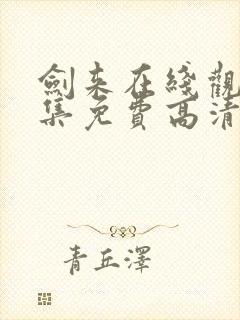 劍來在綫觀
集免費高清
青丘澤